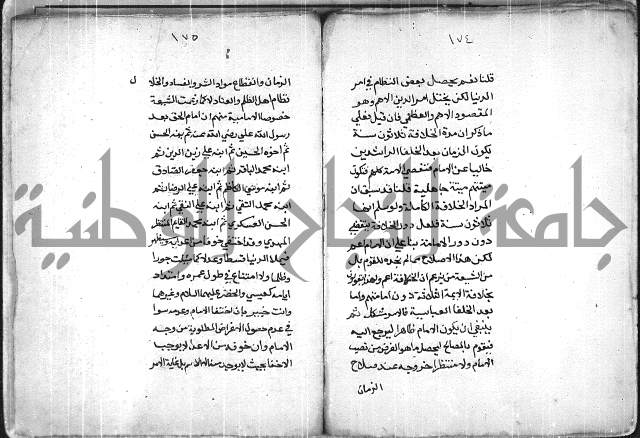 ١٧٤
قلنا نعم يحصل بعض النظام في امر
الدنيا لكن يختل امر الدين الاهم وهو
المقصود الاهم والعظمى فان قيل فعلى
ما ذكر ان مدة الخلافة ثلاثون سنة
يكون الزمان بعد الخلفا الراشدين
خاليا عن الامام فتعصى الامة كلهم فتكون
ميتتهم ميتة جاهلية قلنا قد سبق ان
المراد الخلافة الكاملة ولو سلم ايضا
ثلاثون سنة فلعل دور الخلافة ينقضي
دون دور الامامة بناء على ان الامام اعم
لكن هذا الاصطلاح مما لم نجده للقوم بل
من الشيعة من يزعم ان الخليفة اعم ولهذا يقولون
بخلافة الايمة الثلاثة دون امامتهم واما
بعد الخلفا العباسية فالامر مشكل ثم
ينبغي ان يكون الامام ظاهرا ليرجع اليه
فيقوم بالمصالح ليحصل ما هو الغرض من نصب
الامام ولا منتظرا خروجه عند صلاح
الزمان
١٧٥
الزمان وانقطاع مواد الشر والفساد وانحلال
نظام اهل الظلم والعناد لا كما زعمت الشيعة
خصوصا الامامية منهم ان الامام الحق بعد
رسول الله علي رضي الله عنه ثم ابنه الحسن
ثم اخوه الحسين ثم ابنه علي زين الدين ثم
ابنه محمد الباقر ثم ابنه جعفر الصادق
ثم ابنه موسى الكاظم ثم ابنه علي الرضا ثم
ابنه محمد التقي ثم ابنه علي النقي ثم ابنه
الحسن العسكري ثم ابنه محمد القائم المنتظر
المهدي وقد اختفى خوفا من اعدايه وسيظهر
فيملا الدنيا قسطا وعدلا كما ملئت جورا
وظلما ولا امتناع في طول عمره وامتداد
ايامه كعيسى والخضر عليهما السلام وغيرهما
وانت خبير بان اختفا الامام وعدمه سوا
في عدم حصول الاغراض المطلوبة من وجود
الامام وان خوفه من الاعدا لا يوجب
الاختفا بحيث لا يوجد منه الا الاسم بل غاية الامر
جامعة النجاح الوطنية